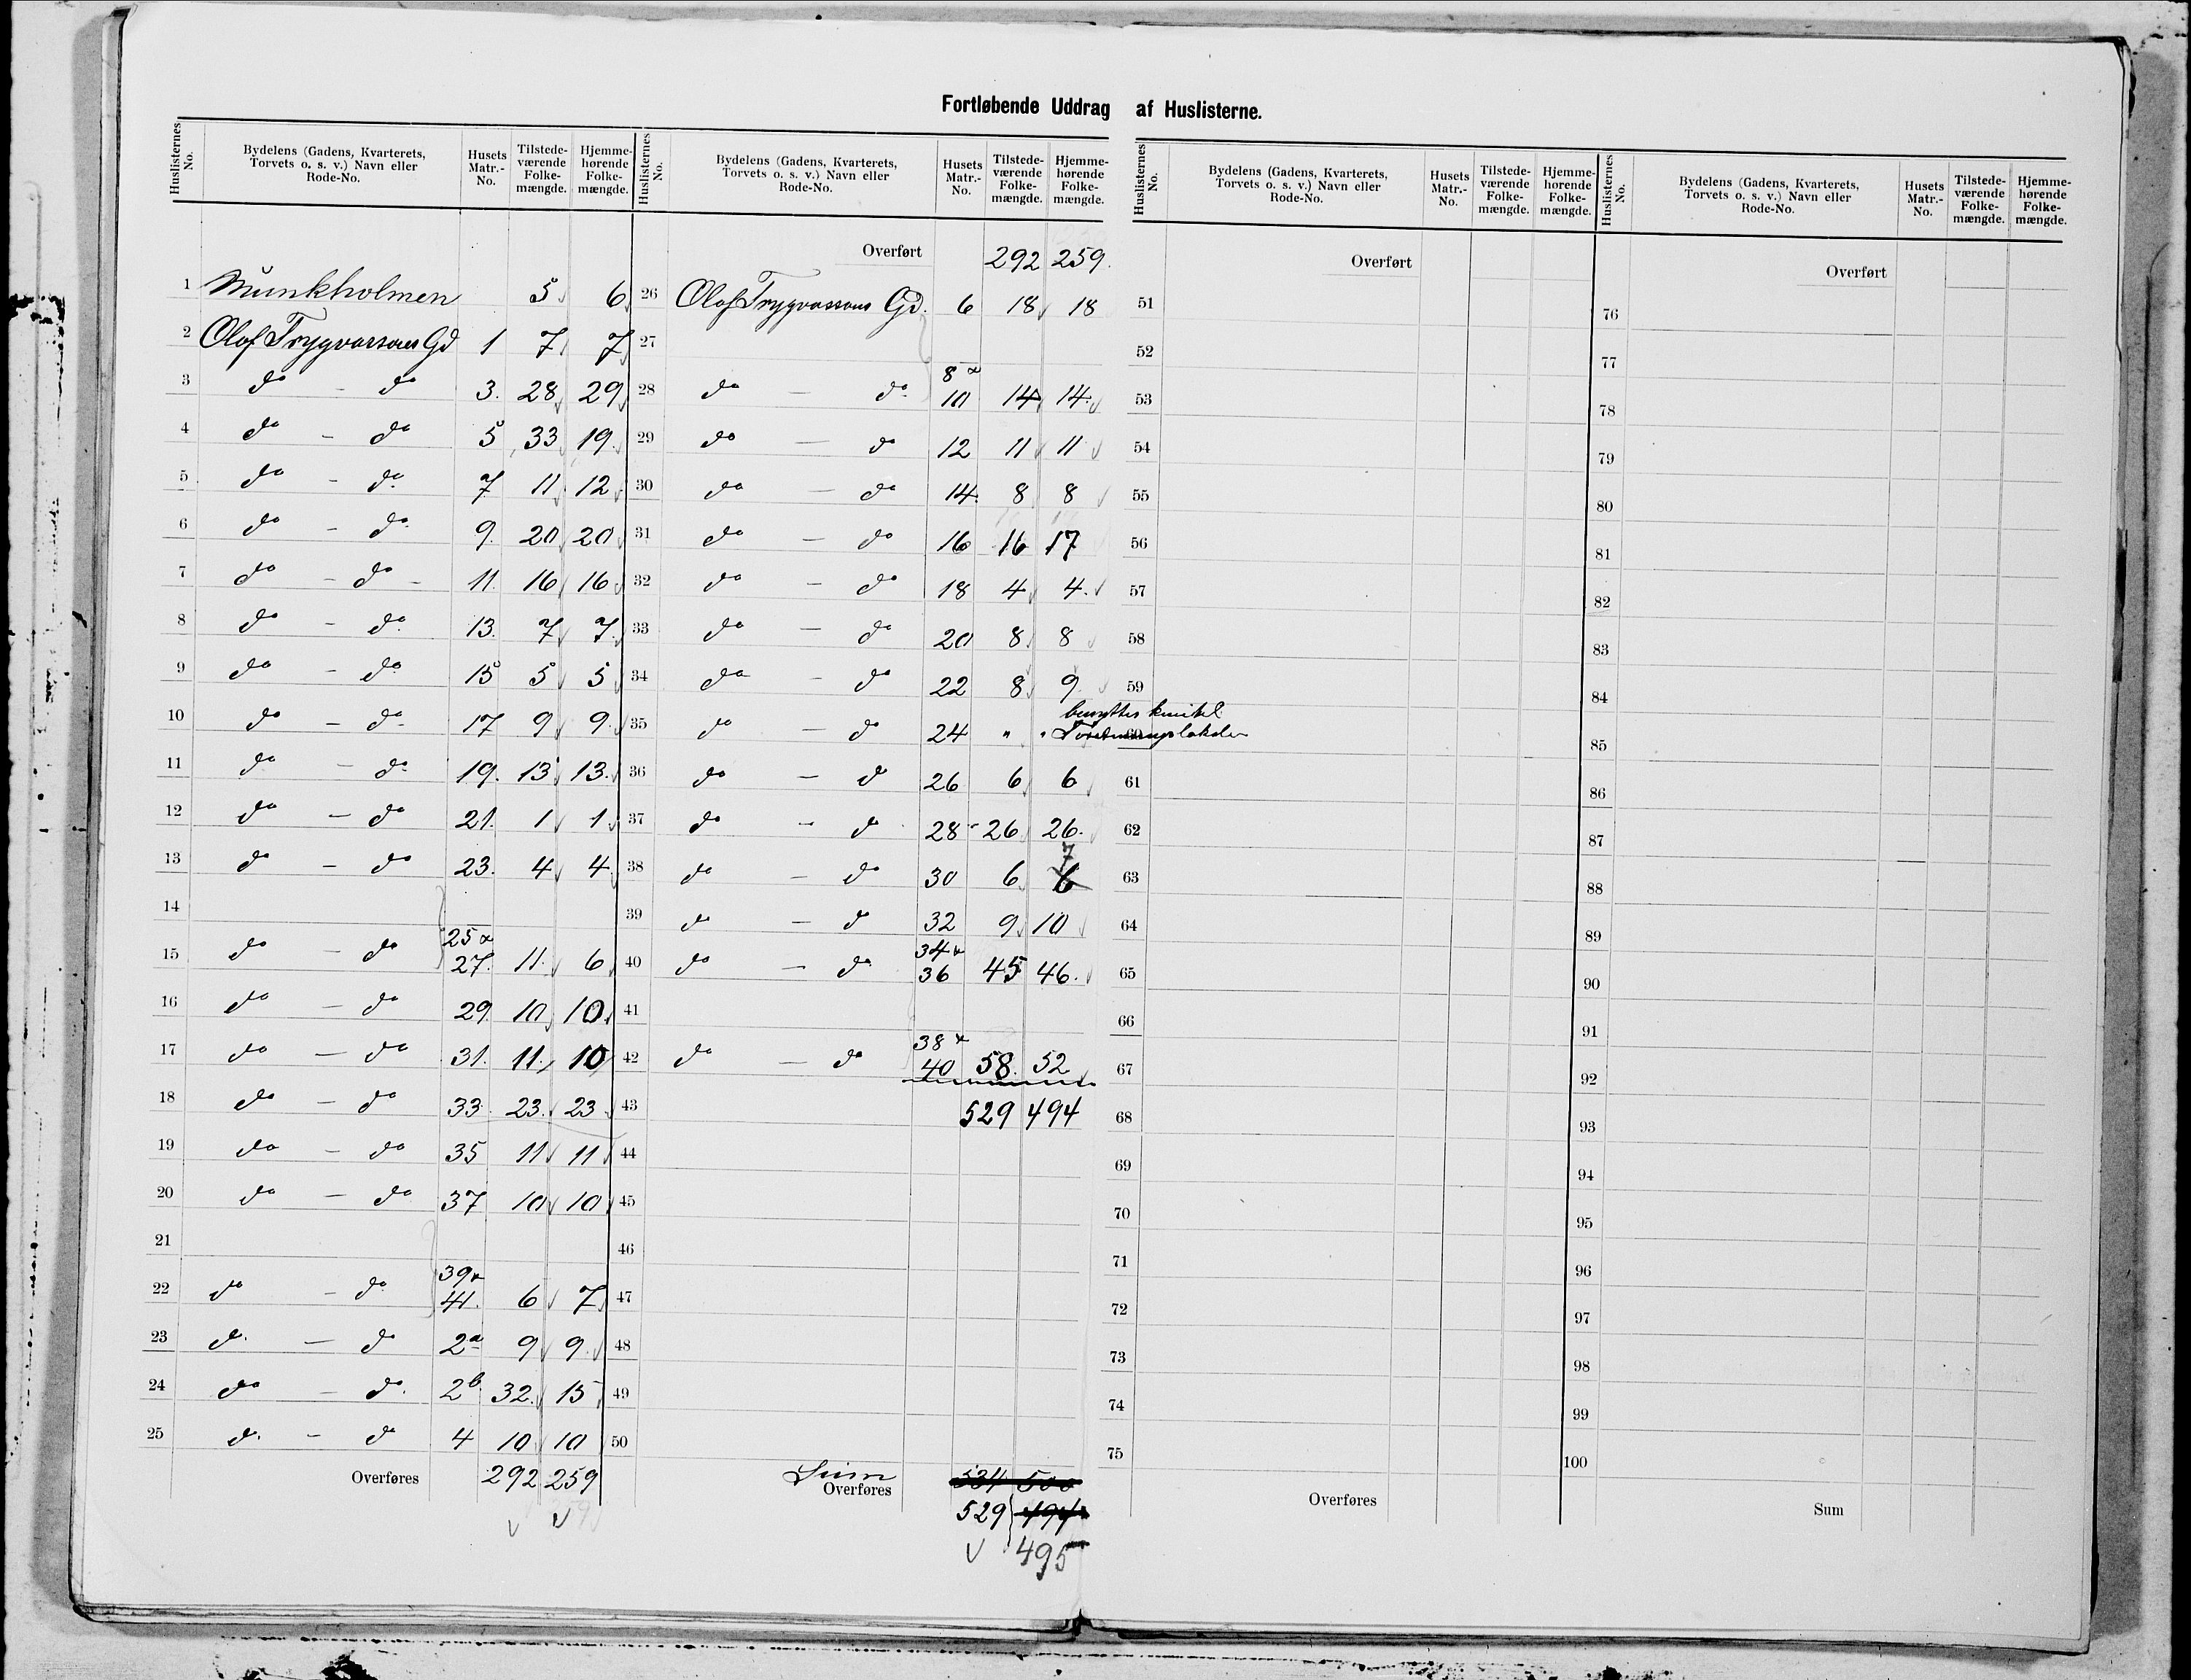 Fortløbende Uddrag af Huslisterne.
Huslisternes No. Bydelens (Gadens, Kvarterets, Torvets o. s. v.) Navn eller Rode-No. Husets Matr.-No. Tilstedeværende Folkemængde. Hjemmehørende Folkemængde.
1 Munkholmen 5 6
2 Olaf Trygvassons Gd 1 7 7
3 do - do 3. 28 29
4 do - do 5 33 19.
5 do - do 7 11 12
6 do - do 9. 20 20
7 do - do - 11. 16 16
8 do - do 13. 7 7
9 do - do 15 5 5
10 do - do 17 9 9
11 do - do 19. 13 13.
12 do - do 21. 1 1
13 do - do 23. 4 4
14
15 do - do 25 & 27. 11. 6
16 do - do 29. 10 10
17 do - do 31. 11. 10
18 do - do 33. 23. 23
19 do - do 35 11 11
20 do - do 37 10 10
21
22 do - do 39 & 41. 6 7
23 do - do 2a 9 9
24 do - do. 2b 32. 15
25 do - do 4 10 10
Overføres 292 259
Huslisternes No. Bydelens (Gadens, Kvarterets, Torvets o. s. v.) Navn eller Rode-No. Husets Matr.-No. Tilstedeværende Folkemængde. Hjemmehørende Folkemængde.
Overført 292 259.
26 Olaf Trygvassons Gd. 6 18 18
27
28 do - do 8 & 10 14 14.
29 do - do 12 11 11
30 do - do 14. 8 8
31 do - do 16 16 17
32 do - do 18 4 4.
33 do - do 20 8 8
34 do - do 22 8 9
35 do - do 24 " " benyttes
36 do - do 26 6 6
37 do - do 28 26 26.
38 do - do 30 6 6 7
39 do - do 32 9 10
40 do - do 34 & 36 45 46.
41
42 do - do 38 & 40 58. 52
43 529 494
44
45
46
47
48
49
50
Sum
Overføres 534 500
529 494
495
Huslisternes No. Bydelens (Gadens, Kvarterets, Torvets o. s. v.) Navn eller Rode-No. Husets Matr.-No. Tilstedeværende Folkemængde. Hjemmehørende Folkemængde.
Overført
51
52
53
54
55
56
57
58
59
60
61
62
63
64
65
66
67
68
69
70
71
72
73
74
75
Overføres
Huslisternes No. Bydelens (Gadens, Kvarterets, Torvets o. s. v.) Navn eller Rode-No. Husets Matr.-No. Tilstedeværende Folkemængde. Hjemmehørende Folkemængde.
Overført
76
77
78
79
80
81
82
83
84
85
86
87
88
89
90
91
92
93
94
95
96
97
98
99
100
Sum